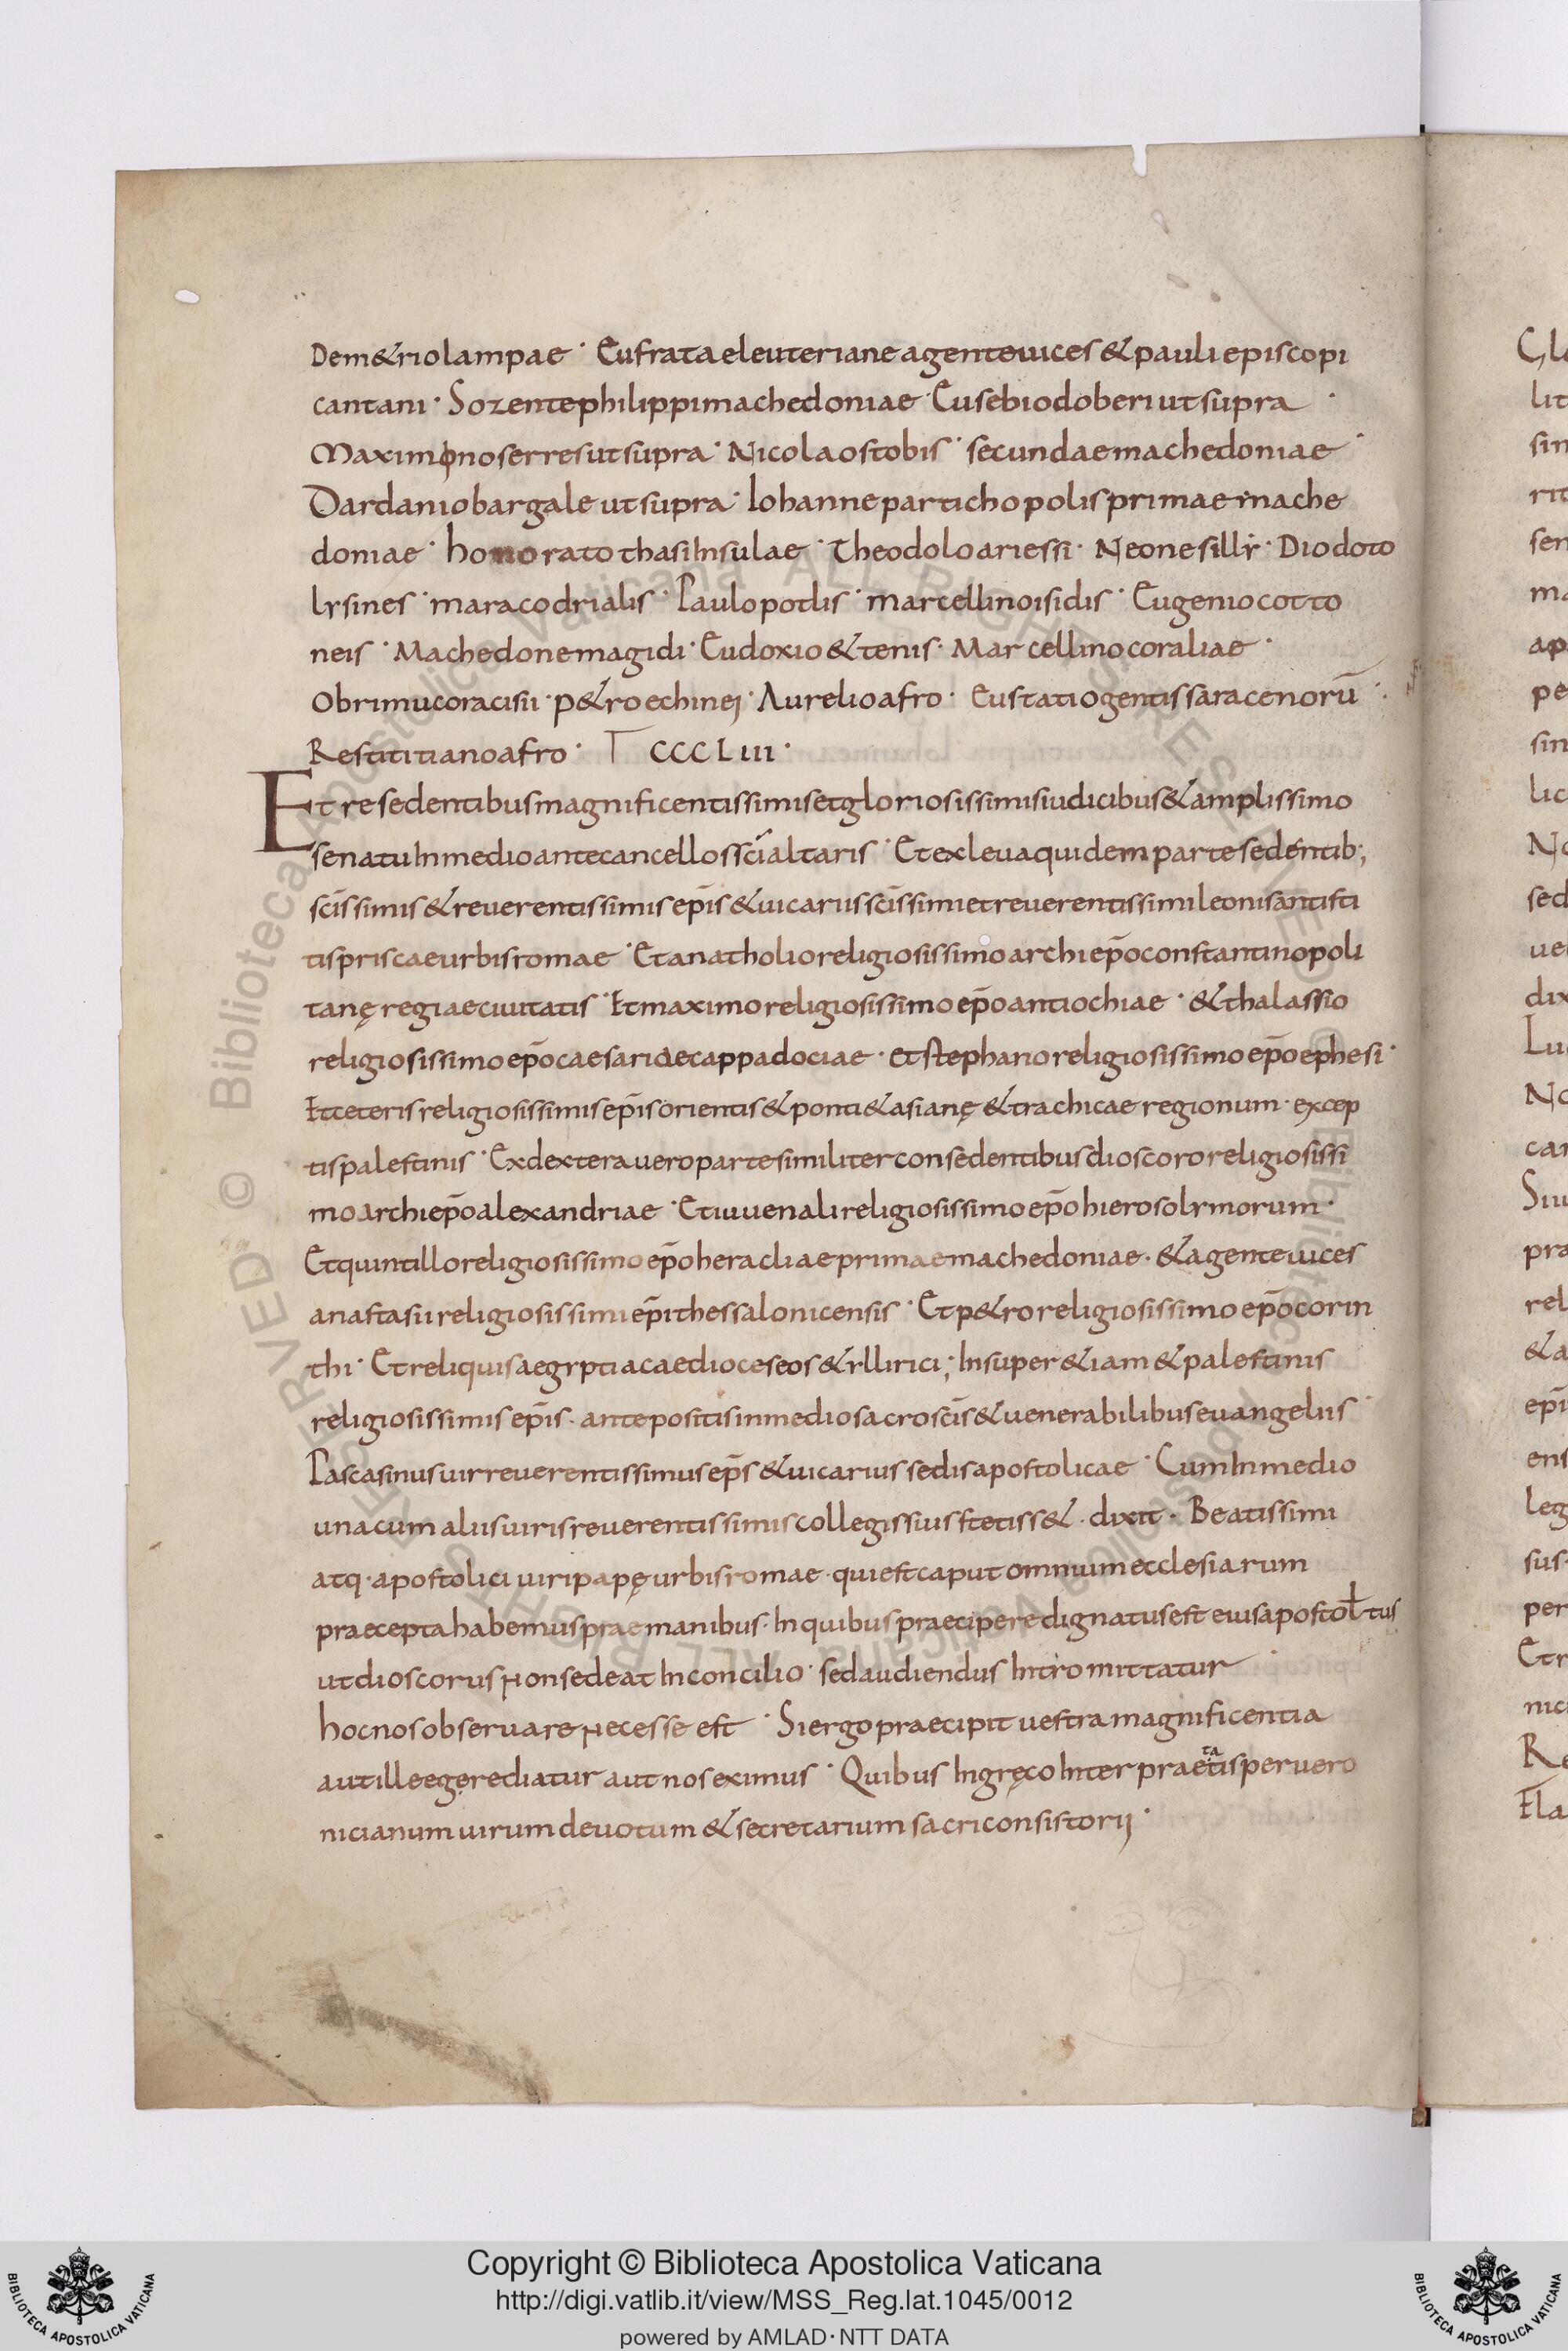 Dem&riolampae · Eufrataeleuterianeagenteuices&pauliepiscopi
cantani · Sozentephilippimachedoniae · Eusebiodoberiutsupra ·
Maximonoserresutsupra · Nicolaostobis · secundaemachedoniae ·
Dardaniobargaleutsupra · Iohannepartichopolisprimaemache
doniae · honoratothasiInsulae · Theodoloariessi · Neonesilly · Diodoto
lysines · maracodrialis · Paulopotlis · marcellinoisidis · Eugeniocotto
neis · Machedonemagidi · Eudoxio&tenis · Marcellinocoraliae ·
Obrimucoracisii · p&roechinej · Aurelioafro · Eustatiogentissaracenorū ·
Restititianoafro · CCCLIII ·
Et resedentibusmagnificentissimisetgloriosissimisiudicibus&amplissimo
senatuInmedioantecancellosscīaltaris · Etexleuaquidempartesedentib;
scīssimis&reuerentissimisep̄is&uicariisscīssimietreuerentissimileonisantisti
tispriscaeurbisromae · Etanatholioreligiosissimoarchiep̄oconstantinopoli
tanę regiaeciuitatis · Etmaximoreligiosissimoep̄oantiochiae · &thalassio
religiosissimoep̄ocaesariaecappadociae · etstephanoreligiosissimoep̄oephesi ·
Etceterisreligiosissimisep̄isorientis&ponti&asianę &trachicae regionum · excep
tispalestinis · Exdexteraueropartesimiliterconsedentibusdioscororeligiosissi
moarchiep̄oalexandriae · Etiuuenalireligiosissimoep̄ohierosolymorum ·
Etquintilloreligiosissimoep̄oheracliaeprimaemachedoniae · &agenteuices
anastasiireligiosissimiep̄ithessalonicensis · Etp&roreligiosissimoep̄ocorin
thi · Etreliquisaegyptiacaedioceseos&yllirici; Insuper&iam&palestinis
religiosissimisep̄is · antepositisinmediosacroscīs&uenerabilibuseuangeliis ·
Pascasinusuirreuerentissimusep̄s&uicariussedisapostolicae · CumInmedio
unacum aliisuirisreuerentissimiscollegissiusstetiss& · dixit · Beatissimi
atq · apostolici uiripapę urbisromae · quiestcaput omniumecclesiarum
praeceptahabemusprae manibus · Inquibuspraeciperedignatusest eiusapostoł tus
utdioscorusnonsedeatInconcilio · sedaudiendus Intromittatur ·
hocnosobseruarenecesse est · Siergopraecipit uestramagnificentia
autilleegerediatur aut noseximus · Quibus Ingręco Interpraetisperuero
ta
nicianumuirumdeuotum &secretarium sacriconsistorij ·
Copyright © Biblioteca Apostolica Vaticana
http://digi.vatlib.it/view/MSS_Reg.lat.1045/0012
powered by AMLAD · NTT DATA